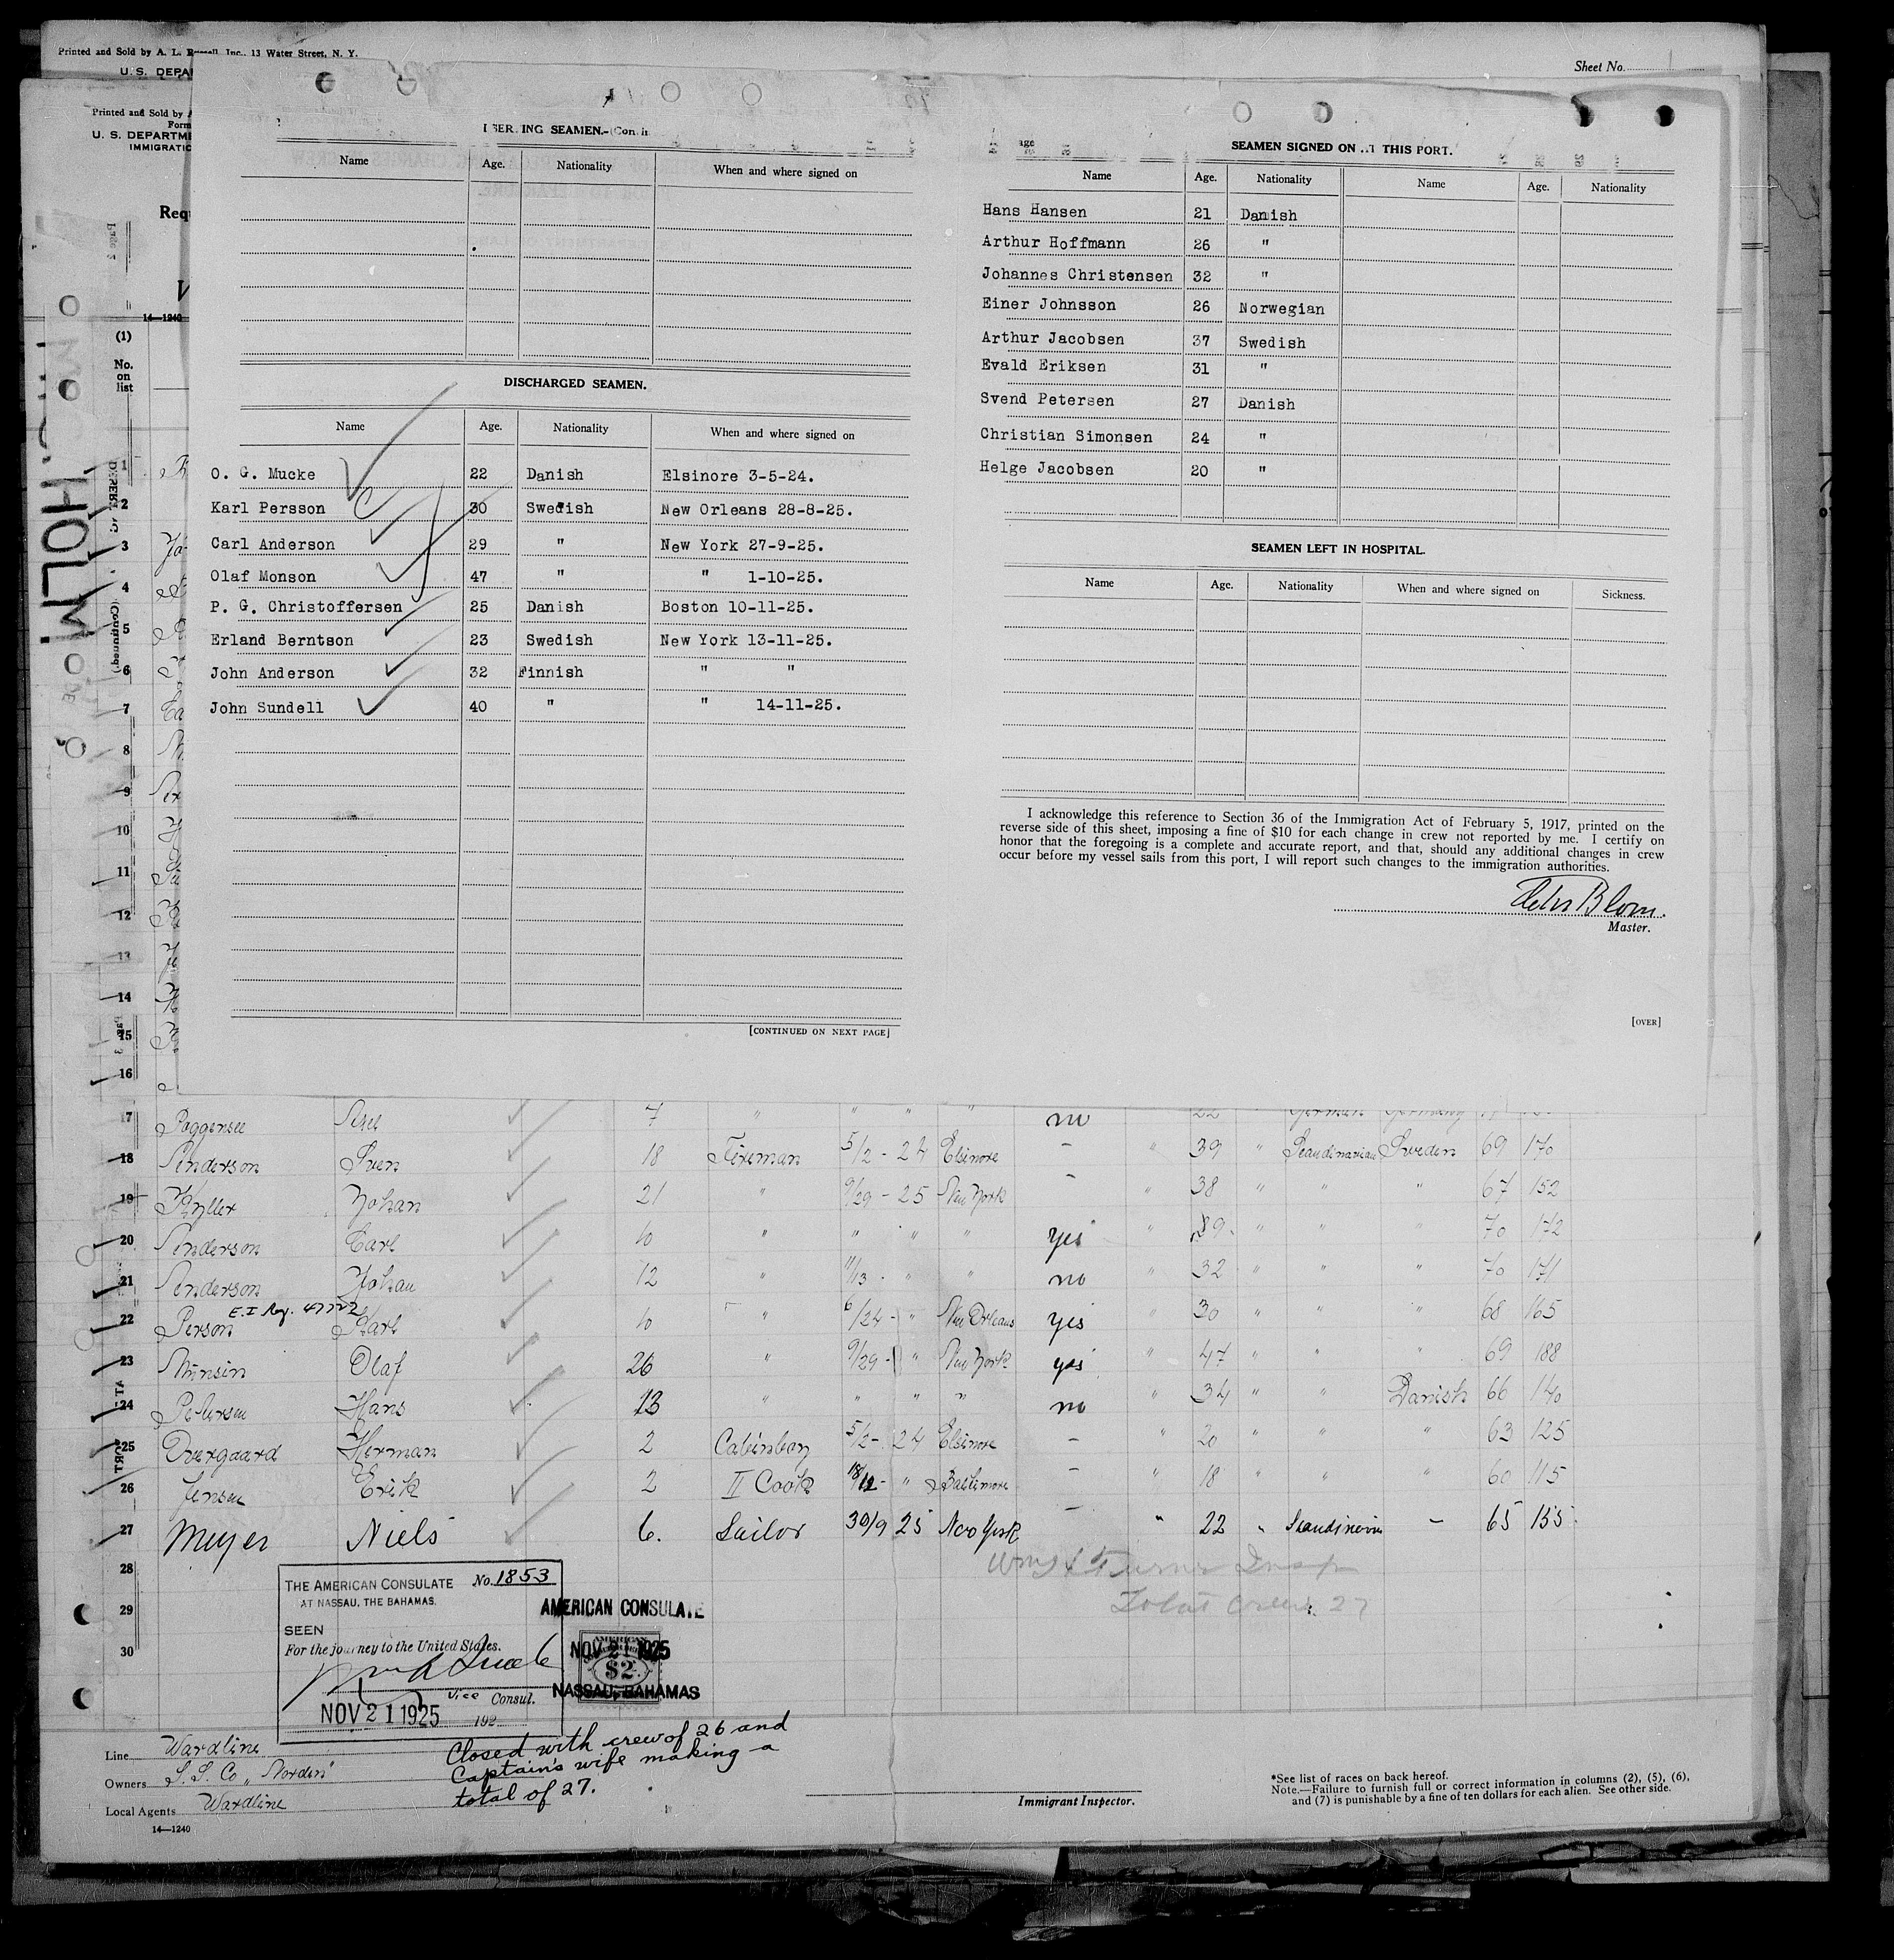 Printed and Sold by A. L. Russell, Inc., 13 Water Street, N. Y.
U. S. DEPA
Sheet No.
Printed and Sold by
Form
U. S. DEPARTME
IMMIGRATIO
Req
14—1240
(1)
No. on list
HOLM
SEAMEN.
Name Age. Nationality When and where signed on
DISCHARGED SEAMEN.
Name Age. Nationality When and where signed on
O. G. Mucke 22 Danish Elsinore 3-5-24.
Karl Persson 30 Swedish New Orleans 28-8-25.
Carl Anderson 29 " New York 27-9-25.
Olaf Monson 47 " " 1-10-25.
P. G. Christoffersen 25 Danish Boston 10-11-25.
Erland Berntson 23 Swedish New York 13-11-25.
John Anderson 32 Finnish " "
John Sundell 40 " " 14-11-25.
[CONTINUED ON NEXT PAGE]
SEAMEN SIGNED ON THIS PORT.
Name Age. Nationality Name Age. Nationality
Hans Hansen 21 Danish
Arthur Hoffmann 26 "
Johannes Christensen 32 "
Einer Johnsson 26 Norwegian
Arthur Jacobsen 37 Swedish
Evald Eriksen 31 "
Svend Petersen 27 Danish
Christian Simonsen 24 "
Helge Jacobsen 20 "
SEAMEN LEFT IN HOSPITAL.
Name Age. Nationality When and where signed on Sickness.
I acknowledge this reference to Section 36 of the Immigration Act of February 5, 1917, printed on the
reverse side of this sheet, imposing a fine of $10 for each change in crew not reported by me. I certify on
honor that the foregoing is a complete and accurate report, and that, should any additional changes in crew
occur before my vessel sails from this port, I will report such changes to the immigration authorities.
Blom.
Master.
[OVER]
1
2
3
4
5
6
7
8
9
10
11
12
13
14
15
16
17 Poggensee 7 " " " " no 22 " German Germany
18 Anderson Sven 18 Fireman 5/2 - 24 Elsinore – " 39 " Scandinavian Sweden 69 170
19 Johan 21 " 9/29 - 25 New York – " 38 " " " 67 152
20 Anderson Carl 10 " " " " yes " 39 " " " 70 172
21 Anderson Johan 12 " 11/13 - " " no " 32 " " " 70 171
E. I Reg. 47772
22 Person Karl 10 " 6/24 - " New Orleans yes " 30 " " " 68 165
23 Olaf 26 " 9/29 - " New York yes " 47 " " " 69 188
24 Petersen Hans 13 " " " " no " 34 " " Danish 66 140
25 Overgaard Herman 2 Cabinboy 5/2 - 24 Elsinore – " 20 " " " 63 125
26 Jensen Erik 2 II Cook 18/12 - " Baltimore – " 18 " " " 60 115
27 Meyer Niels 6. Sailor 30/9 25 New York – " 22 " – 65 155
28
29
30
Total Crew 27
THE AMERICAN CONSULATE No. 1853
AT NASSAU, THE BAHAMAS.
SEEN
For the journey to the United States.
Vice Consul.
NOV 21 1925 192
AMERICAN CONSULATE
NOV 21 1925
$2
NASSAU, BAHAMAS
Line Wardline
Owners S. S. Co „Norden"
Local Agents Wardline
14—1240
Closed with crew of 26 and
Captain's wife making a
total of 27.
Immigrant Inspector.
*See list of races on back hereof.
Note.—Failure to furnish full or correct information in columns (2), (5), (6),
and (7) is punishable by a fine of ten dollars for each alien. See other side.